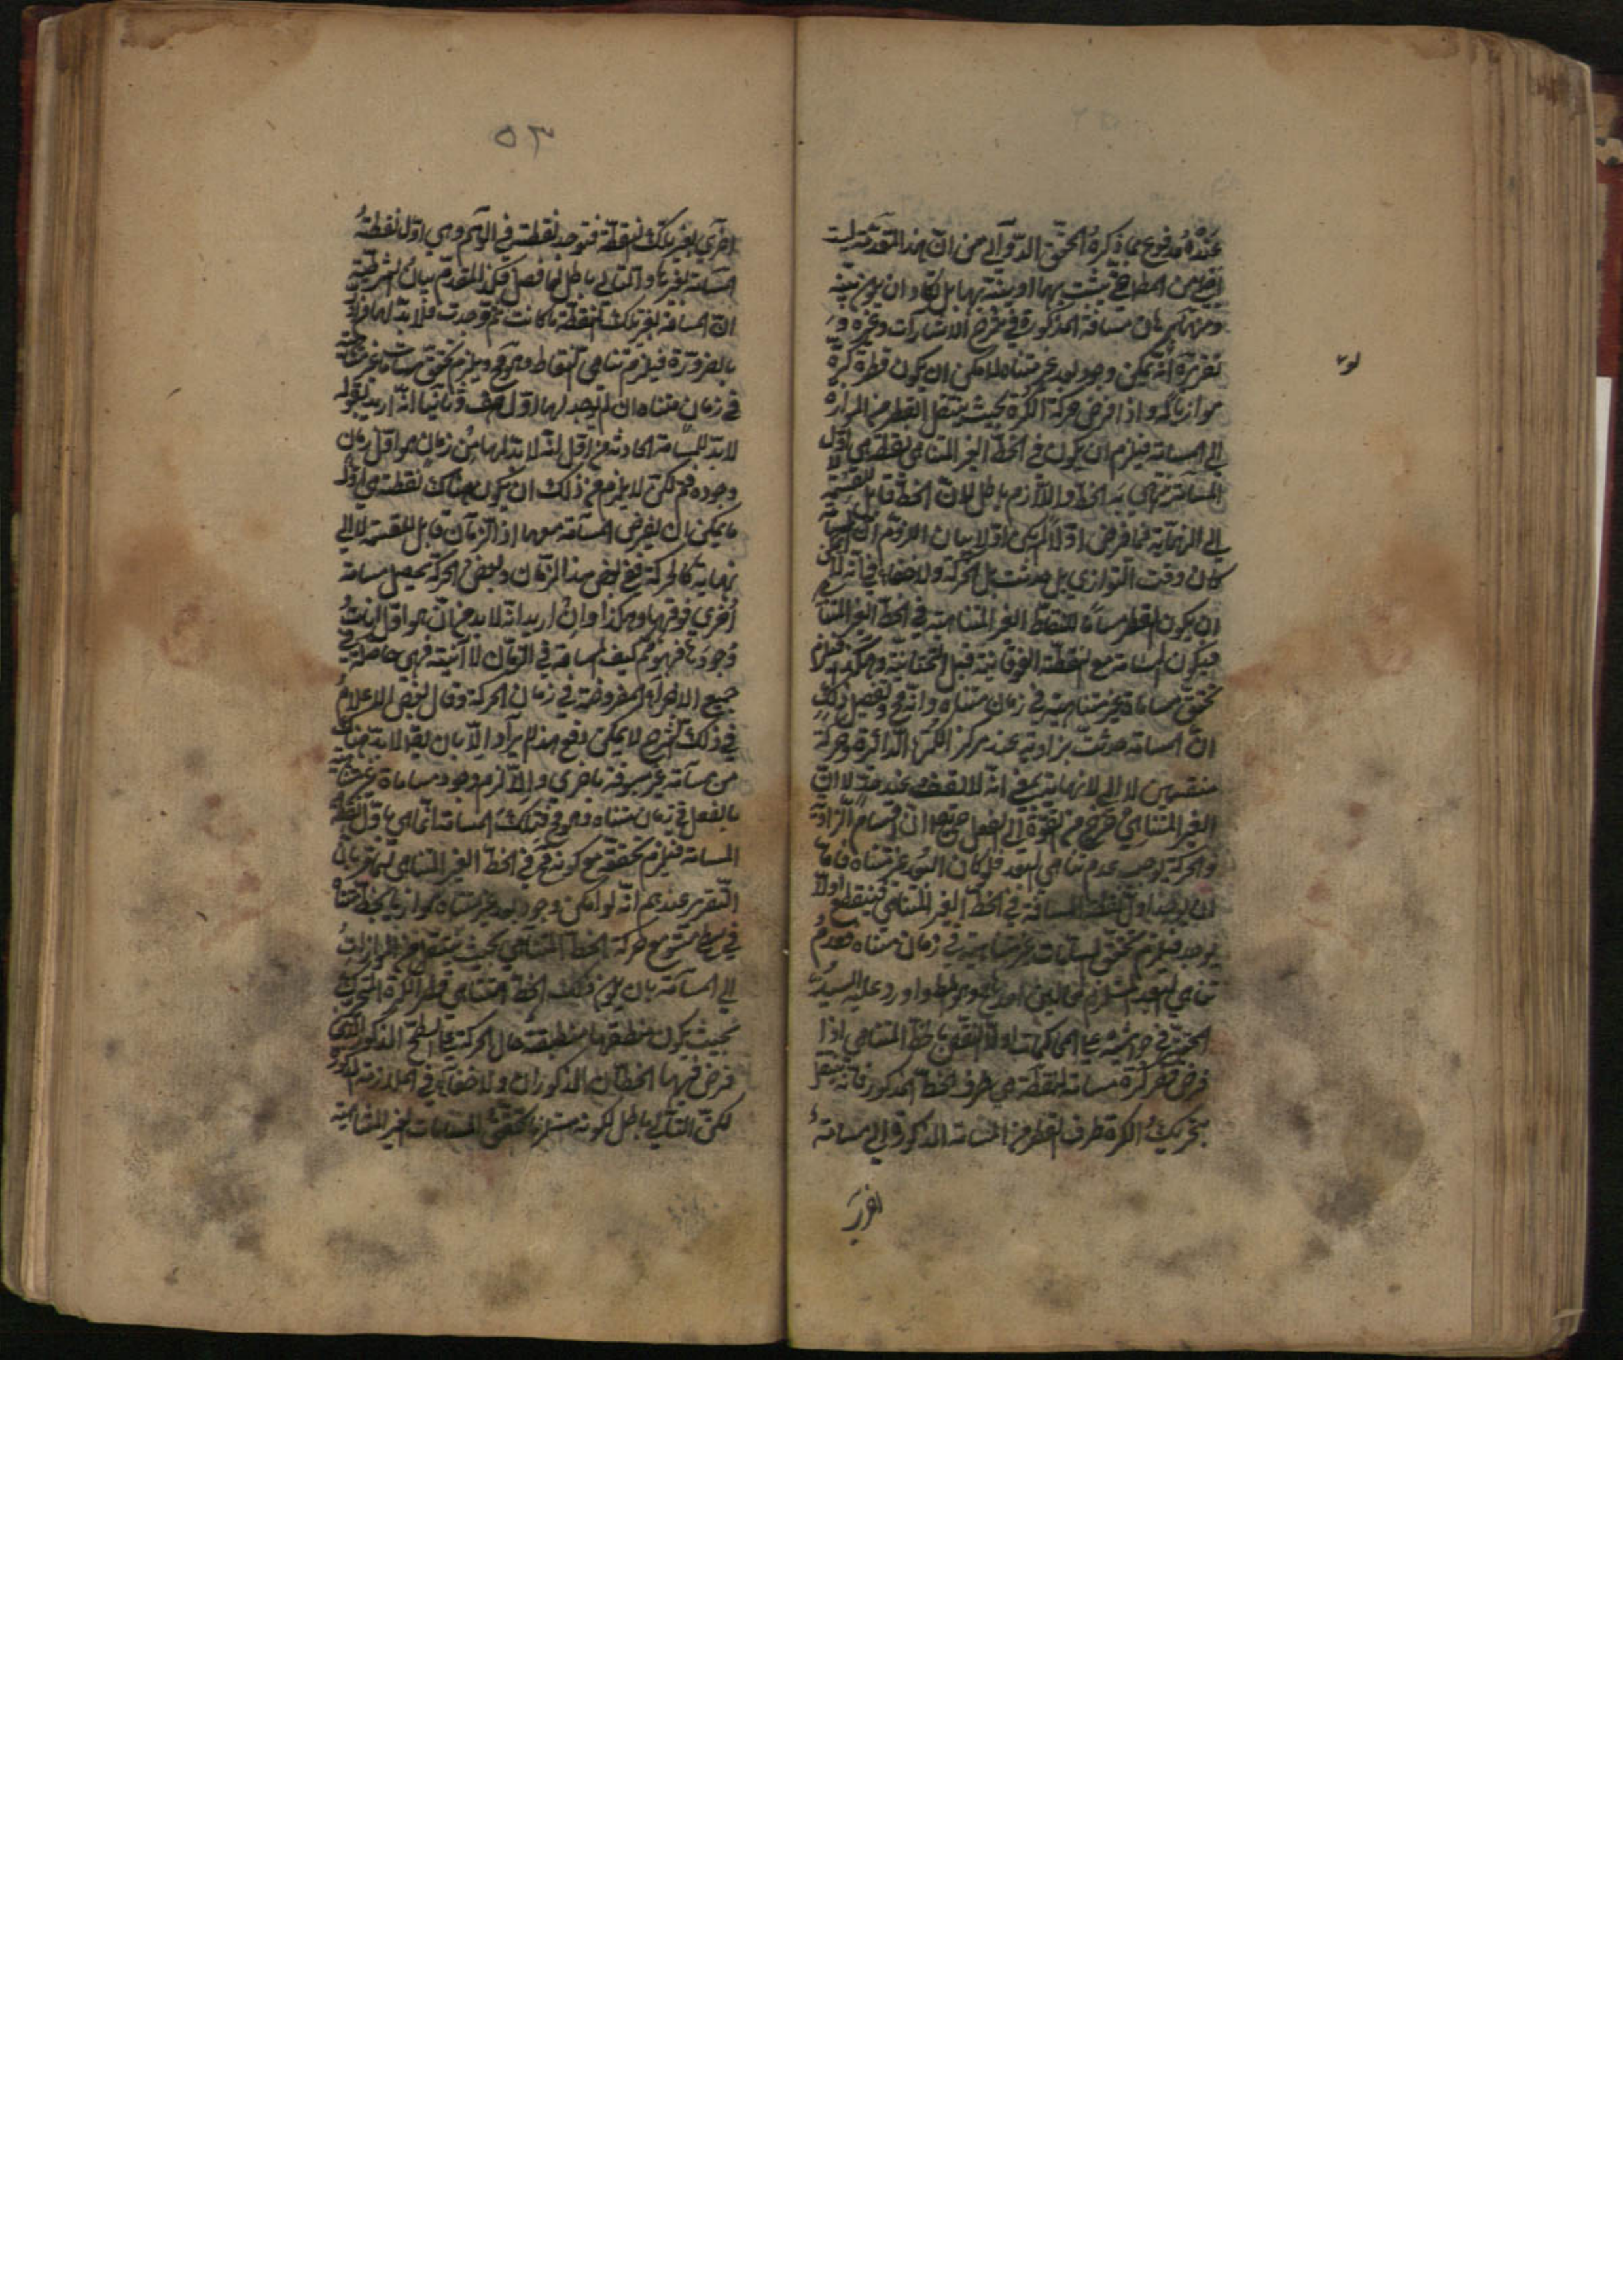 عنده مدفوع بما ذكره المحقق الدواني من ان هذا المقدمة ليست
اخفى من المط حتى يثبت بها او ينبه بها بل كاد ان يكون بينة
ومنها برهان مسافة المذكورة في شرح الاشارات وغيره و
تقريره انه يمكن وجود بعد غير متناه لا مكن ان يكون قطر كرة
موازيا له واذا فرض حركة الكرة بحيث ينتقل القطر من الموازاة
الى المسامتة فيلزم ان يكون في الخط الغير المتناهي نقطة هي اول
المسامتة ينتهي به الخط واللازم باطل لان الخط قابل للقسمة لا
الى النهاية فما فرض اولا لم يكن اولا بيان اللزوم ان المسامتة
كان وقت التوازي بل حدثت بل الحركة ولا خفاء في انه لا يمكن
ان يكون القطر مسامتا للنقاط الغير المتناهية في الخط الغير المتناهي
فيكون المسامتة مع النقطة الفوقانية قبل التحتانية وهكذا فيلزم
تحقق مسامتات غير متناهية في زمان متناه وانه مح وتفصيل ذلك
ان المسامتة حدثت بزاوية عند مركز الكرة الدائرة وحركة
منقسمين لا الى لانهاية بمعنى انه لا تقف عند حد لا ان
الغير المتناهي خرج من القوة الى الفعل جميعا ان اقسام الزاوية
والحركة يوجب عدم تناهي البعد فلو كان البعد غير متناه فاما
ان يوجد اول نقطة المسامتة في الخط الغير المتناهي فينقطع او لا
يوجد فيلزم تحقق مسامتات غير متناهية في زمان متناه فعدم
تناهي البعد المستلزم محالين احدهما وهو المط واورد عليه السيد
في حواشيه على المحاكمات اولا النقض بالخط المتناهي اذا
فرض قطر كرة مسامتة لنقطة هي طرف الخط المذكور فانه ينتقل
بتحريك الكرة طرف القطر من المسامتة المذكورة الى مسامتة
اخرى
٥٣
اخرى لغير تلك النقطة فتوجد نقطة في الوهم وهي اول نقطة
المسامتة لغيرها والتالي باطل لما فصل فكذا المقدم بيان الشرطية
ان المسامتة لغير تلك النقطة ما كانت ثم وجدت فلا بد لها من اول
بالضرورة فيلزم تناهي النقاط وهو مح ويلزم تحقق مسامتات غير متناهية
في زمان متناه ان لم يوجد لها اول هف وثانيا انه اريد بقوله
لا بد للمسامتة الحادثة من اول انه لا بد لها من زمان هو اول زمان
وجوده فم لكن لا يلزم من ذلك ان يكون هناك نقطة هي اول
ما يمكن ان يفرض المسامتة معها اذ الزمان قابل للقسمة لا الى
نهاية كالحركة ففي بعض هذا الزمان وبعض الحركة يحصل مسامتة
اخرى فوقها وهكذا وان اريد انه لا بد من ان هو اول انات
وجودها فهو مم كيف المسامتة في الزمان لا آنية فهي حاصلة في
جميع الاجزاء المفروضة في زمان الحركة وقال بعض الاعلام
في ذلك الشرح لا يمكن دفع هذا الايراد الا بان يقال لا بد هناك
من مسامتة غير مسبوقة باخرى والا لزم وجود مسامتات غير متناهية
بالفعل في زمان متناه وهو مح فتلك المسامتة انما هي باول نقطة
المسامتة فيلزم تحققه مع كونه مح في الخط الغير المتناهي
التقرير عندهم انه لو امكن وجود بعد غير متناه موازيا بخط متناه
في سطح مستو مع حركة الخط المتناهي بحيث ينتقل من الموازاة
الى المسامتة بان يكون ذلك الخط المتناهي قطر الكرة المتحركة
بحيث يكون منطقتها منطبقة حال الحركة على السطح المذكور الذي
فرض فيها الخطان المذكوران ولا خفاء في الملازمة المذكورة
لكن التالي باطل لكونه مستلزما لتحقق المسامتات الغير المتناهية